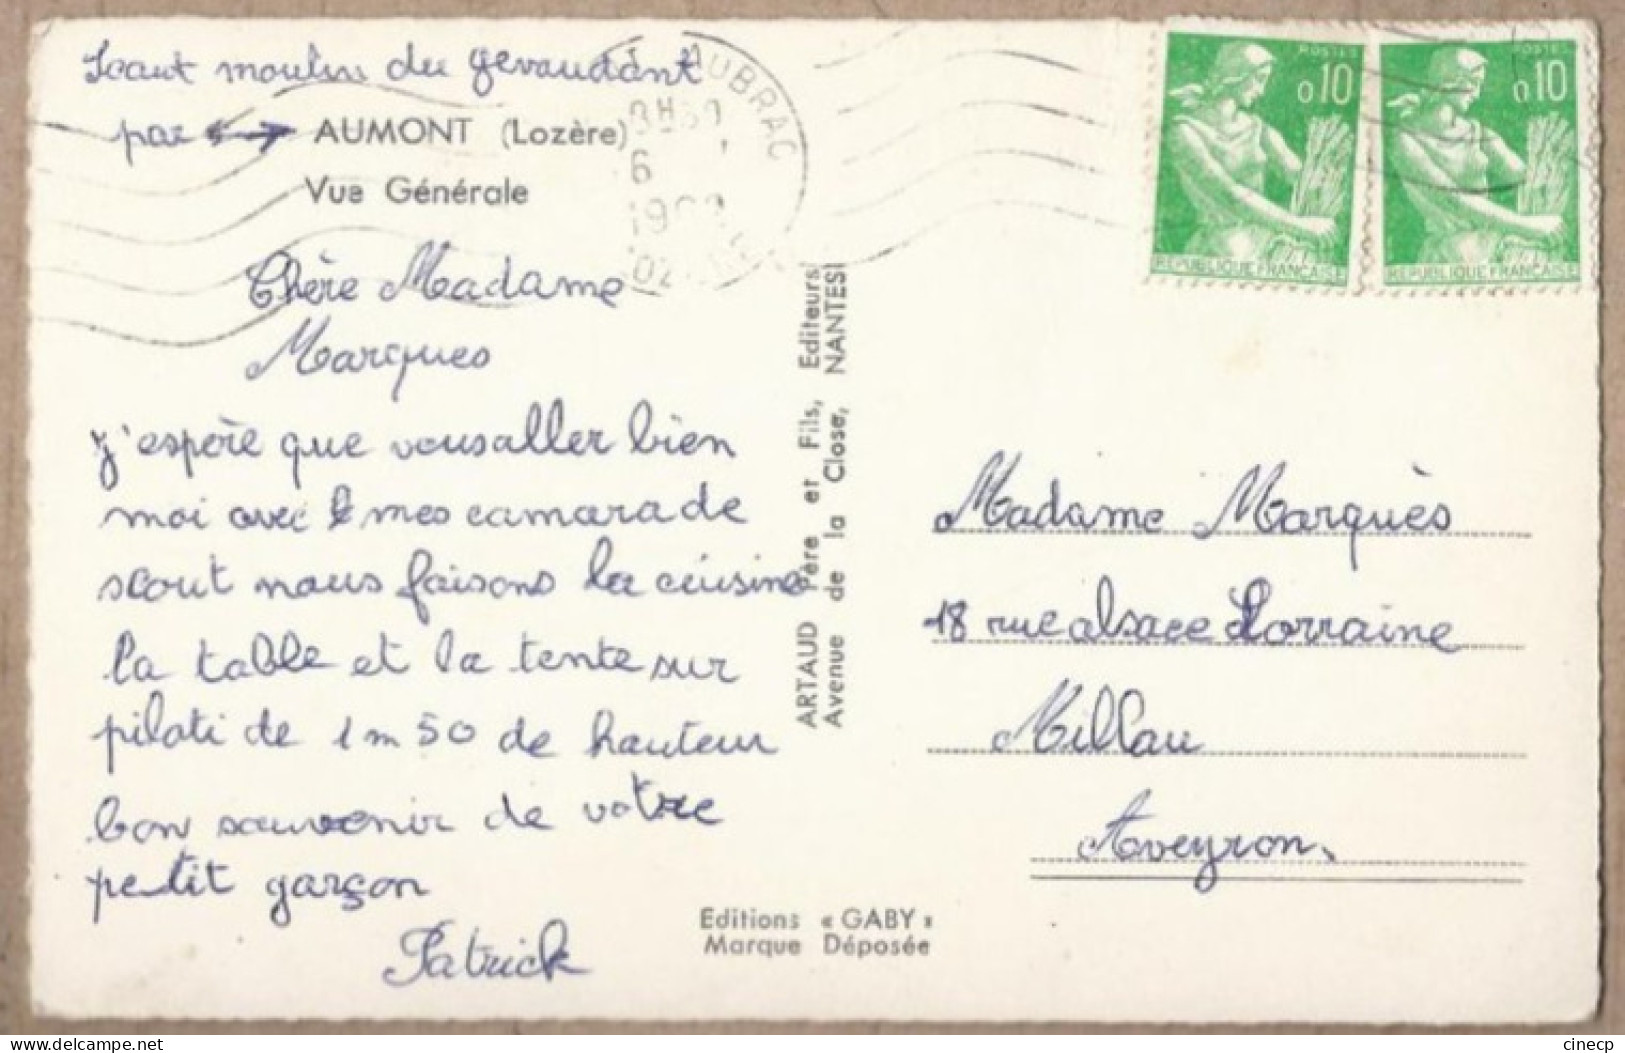 Scaut moulin du gevaudant
par AUMONT (Lozère)
Vue Générale
AUBRAC
6
Chère Madame
Marques
j'espère que vous aller bien
moi avec mes camarade
scout nous faisons la cuisine
la table et la tente sur
piloti de 1 m 50 de hauteur
bon souvenir de votre
petit garçon
Patrick
ARTAUD Père et Fils, Editeurs
Avenue de la Close, NANTES
Editions « GABY »
Marque Déposée
POSTES
0,10
REPUBLIQUE FRANCAISE
POSTES
0,10
REPUBLIQUE FRANCAISE
Madame Marquès
18 rue alsace Lorraine
Millau
Aveyron.
delcampe.net
cinecp